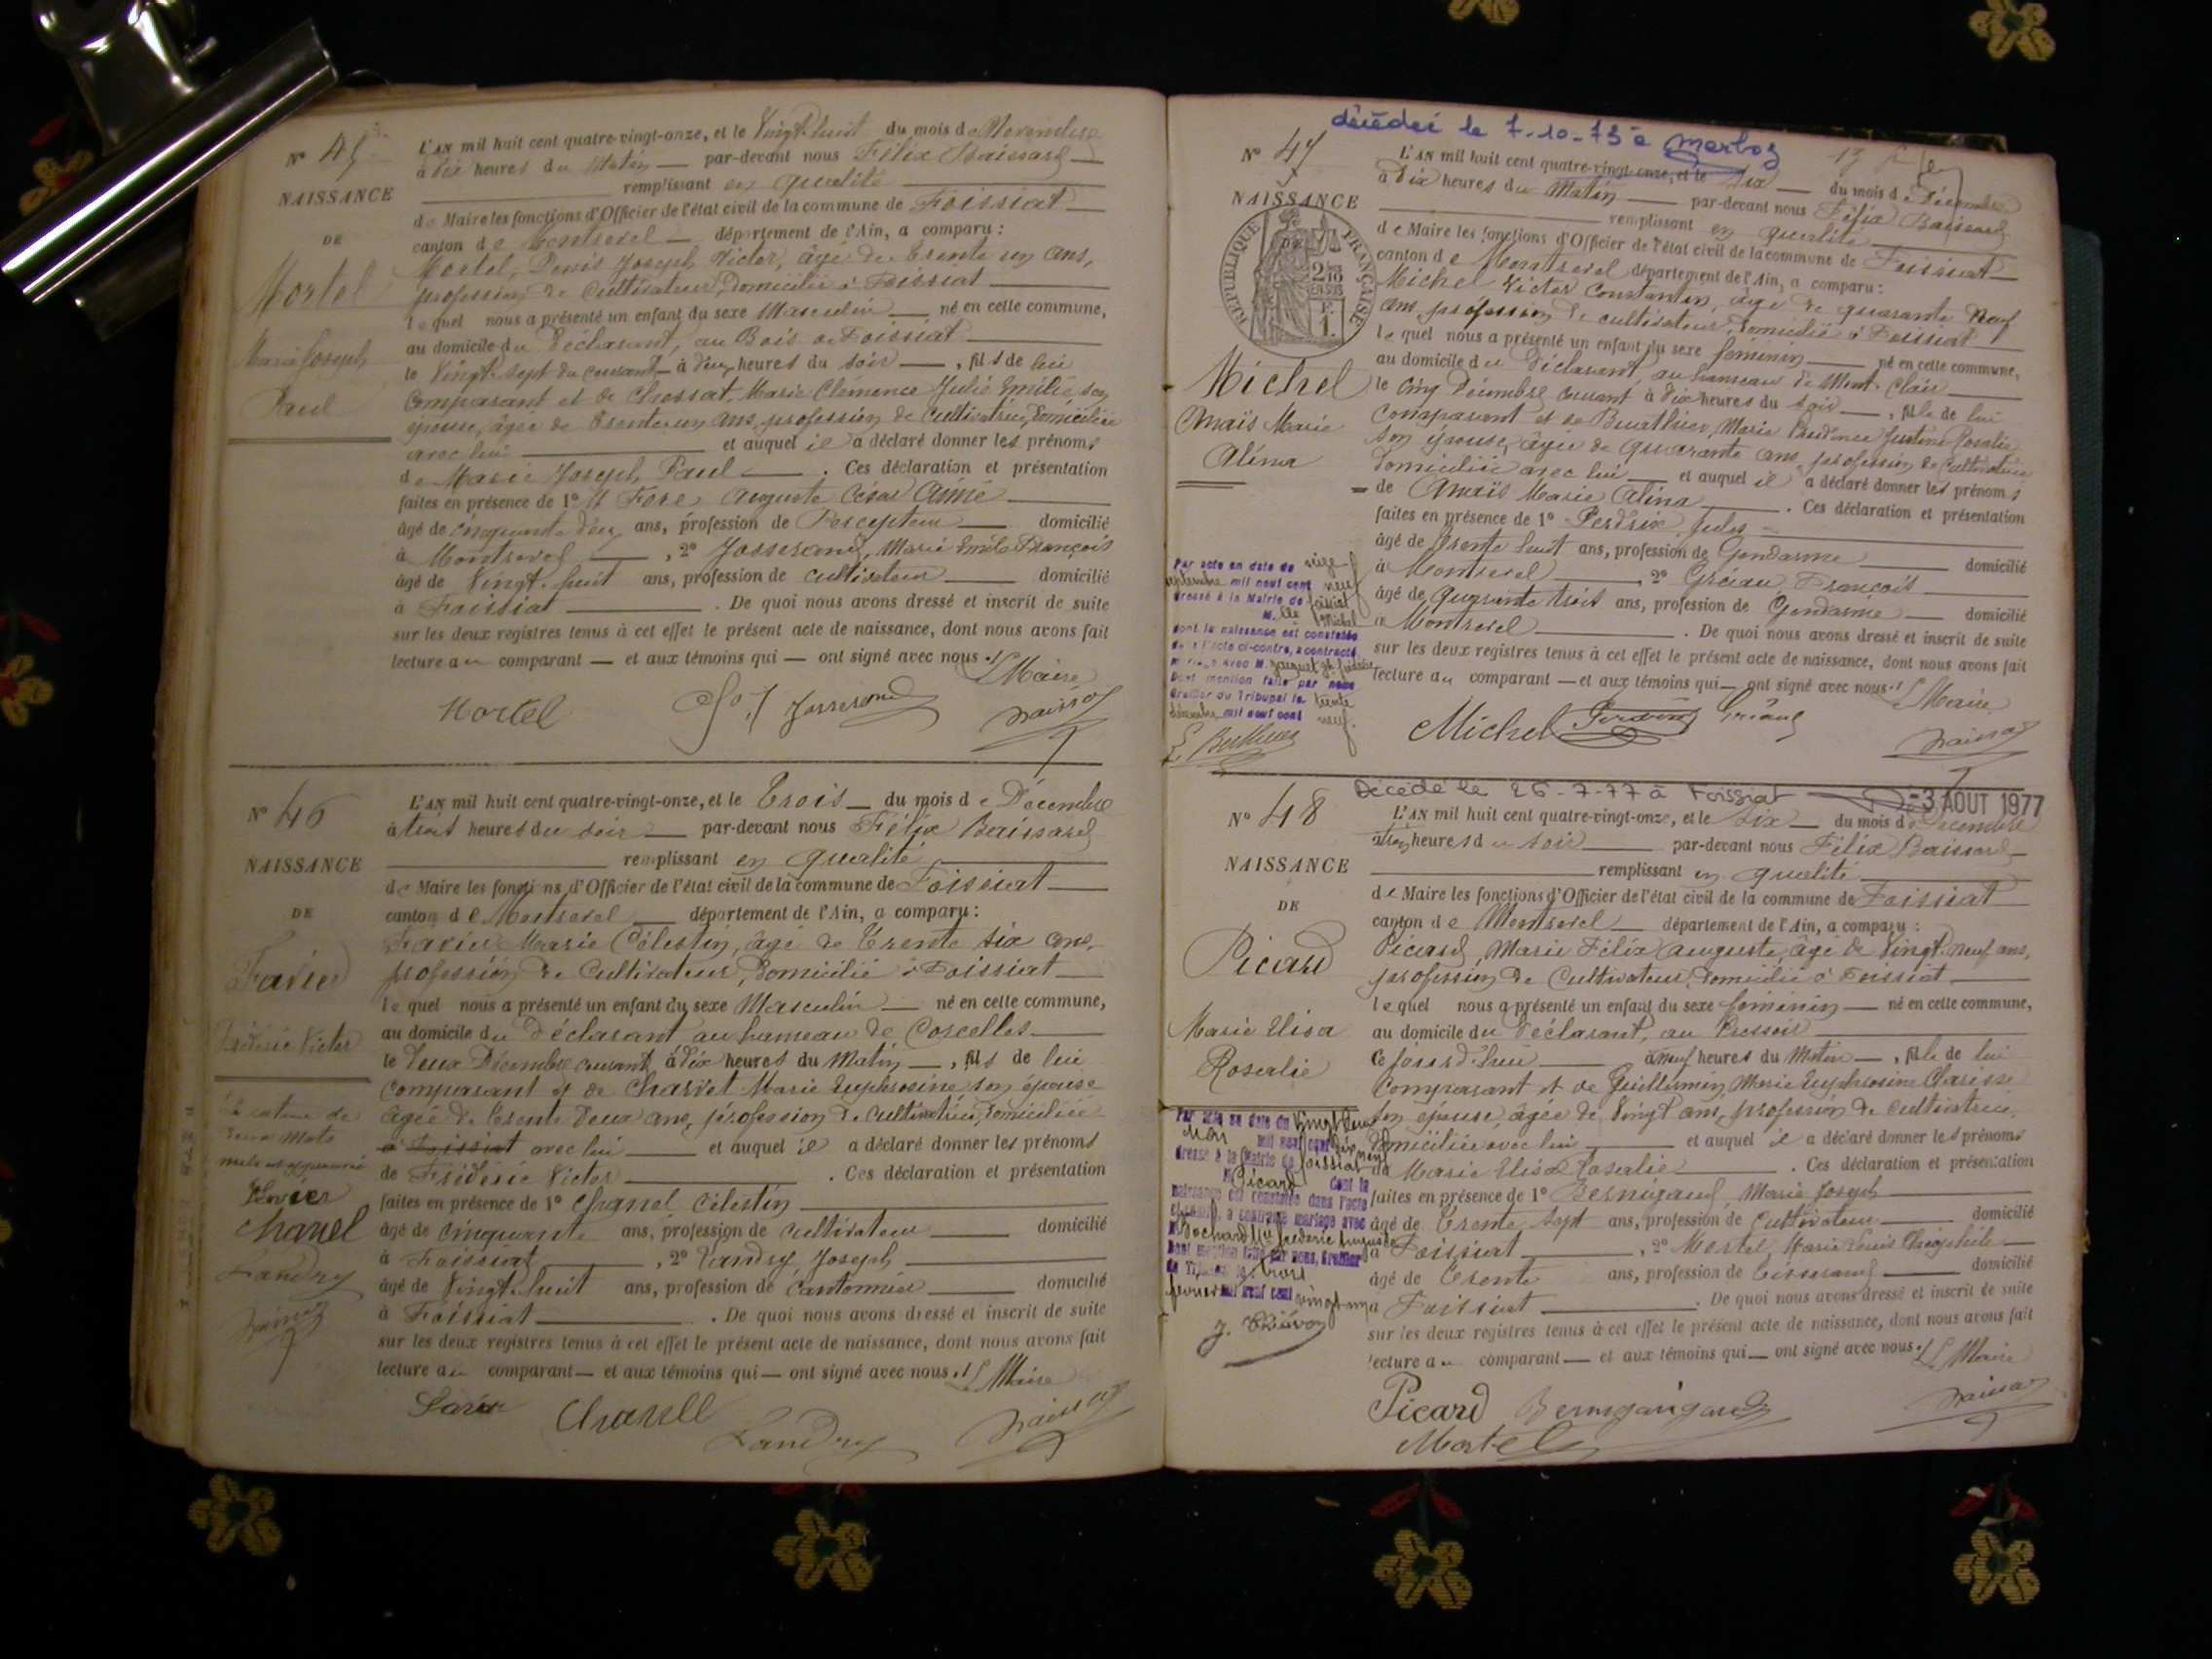 N° 45
NAISSANCE
DE
Mortel
Marie Joseph
Paul
L'AN mil huit cent quatre-vingt-onze, et le Vingt-huit du mois de Novembre
à dix heures du Matin par-devant nous Félix Baissard
remplissant en qualité
de Maire les fonctions d'Officier de l'état civil de la commune de Foissiat
canton de Montrevel département de l'Ain, a comparu :
Mortel, Denis Joseph Victor, âgé de trente un ans,
profession de Cultivateur, domicilié à Foissiat
lequel nous a présenté un enfant du sexe Masculin né en cette commune,
au domicile du Déclarant, au Bois de Foissiat
le Vingt-sept du courant à deux heures du soir, fils de lui
Comparant et de Chossat, Marie Clémence Julie Emélie, son
épouse, âgée de trente un ans, profession de Cultivatrice, domiciliée
avec lui et auquel il a déclaré donner les prénoms
de Marie Joseph Paul. Ces déclaration et présentation
faites en présence de 1° Auguste César Aimé
âgé de cinquante deux ans, profession de Percepteur domicilié
à Montrevel, 2° Josserand, Marie Emile François
âgé de Vingt-huit ans, profession de cultivateur domicilié
à Foissiat. De quoi nous avons dressé et inscrit de suite
sur les deux registres tenus à cet effet le présent acte de naissance, dont nous avons fait
lecture au comparant et aux témoins qui ont signé avec nous
Le Maire
Mortel Josserand
N° 46
NAISSANCE
DE
Favier
Frédéric Victor
La rature de
deux mots
nuls est approuvée
Favier
Chanel
Landry
L'AN mil huit cent quatre-vingt-onze, et le Trois du mois de Décembre
à trois heures du soir par-devant nous Félix Baissard
remplissant en qualité
de Maire les fonctions d'Officier de l'état civil de la commune de Foissiat
canton de Montrevel département de l'Ain, a comparu :
Favier Marie Célestin, âgé de trente six ans,
profession de Cultivateur, domicilié à Foissiat
lequel nous a présenté un enfant du sexe Masculin né en cette commune,
au domicile du Déclarant au hameau de Corcelles
le deux Décembre courant à dix heures du Matin, fils de lui
Comparant et de Charvet Marie Euphrosine son épouse
âgée de trente deux ans, profession de Cultivatrice, domiciliée
à Foissiat avec lui et auquel il a déclaré donner les prénoms
de Frédéric Victor. Ces déclaration et présentation
faites en présence de 1° Chanel Célestin
âgé de cinquante ans, profession de cultivateur domicilié
à Foissiat, 2° Landry Joseph
âgé de Vingt-huit ans, profession de Cantonnier domicilié
à Foissiat. De quoi nous avons dressé et inscrit de suite
sur les deux registres tenus à cet effet le présent acte de naissance, dont nous avons fait
lecture au comparant et aux témoins qui ont signé avec nous
Le Maire
Favier Chanell
Landry
décédée le 7-10-73 à Marboz
N° 47
NAISSANCE
DE
RÉPUBLIQUE FRANÇAISE
Michel
Anaïs Marie
Alina
L'AN mil huit cent quatre-vingt-onze, et le Six du mois de Décembre
à Dix heures du Matin par-devant nous Félix Baissard
remplissant en qualité
de Maire les fonctions d'Officier de l'état civil de la commune de Foissiat
canton de Montrevel département de l'Ain, a comparu :
Michel Victor Constantin, âgé de quarante neuf
ans, profession de cultivateur, domicilié à Foissiat
lequel nous a présenté un enfant du sexe féminin né en cette commune,
au domicile du Déclarant, au hameau de Mont-Clair
le cinq Décembre courant à dix heures du soir, fille de lui
Comparant et de Buathier, Marie Prudence Justine Rosalie
son épouse, âgée de quarante ans, profession de Cultivatrice
domiciliée avec lui et auquel il a déclaré donner les prénoms
de Anaïs Marie Alina. Ces déclaration et présentation
faites en présence de 1° Perdrix Jules
âgé de trente huit ans, profession de Gendarme domicilié
à Montrevel, 2° Gréau François
âgé de quarante trois ans, profession de Gendarme domicilié
à Montrevel. De quoi nous avons dressé et inscrit de suite
sur les deux registres tenus à cet effet le présent acte de naissance, dont nous avons fait
lecture au comparant et aux témoins qui ont signé avec nous
Le Maire
Michel
Par acte en date du seize
septembre mil neuf cent neuf
dressé à la Mairie de Foissiat
M. Michel
dont la naissance est constatée
dans l'acte ci-contre, a contracté
mariage avec M.
Dont mention faite par nous
Greffier du Tribunal le trente
décembre mil neuf cent neuf.
Décédé le 26-7-77 à Foissiat
-3 AOUT 1977
N° 48
NAISSANCE
DE
Picard
Marie Elisa
Rosalie
L'AN mil huit cent quatre-vingt-onze, et le Six du mois de Décembre
heures du soir par-devant nous Félix Baissard
remplissant en qualité
de Maire les fonctions d'Officier de l'état civil de la commune de Foissiat
canton de Montrevel département de l'Ain, a comparu :
Picard, Marie Félix Auguste, âgé de Vingt-neuf ans,
profession de Cultivateur, domicilié à Foissiat
lequel nous a présenté un enfant du sexe féminin né en cette commune,
au domicile du Déclarant, au Pressoir
Ce jourd'hui à neuf heures du Matin, fille de lui
Comparant et de Guillermin Marie Euphrosine Clarisse
son épouse, âgée de Vingt ans, profession de Cultivatrice
domiciliée avec lui et auquel il a déclaré donner les prénoms
de Marie Elisa Rosalie. Ces déclaration et présentation
faites en présence de 1° Bernigaud Marie Joseph
âgé de trente sept ans, profession de Cultivateur domicilié
à Foissiat, 2° Mortel Marie Louis Théophile
âgé de trente ans, profession de Tisserand domicilié
à Foissiat. De quoi nous avons dressé et inscrit de suite
sur les deux registres tenus à cet effet le présent acte de naissance, dont nous avons fait
lecture au comparant et aux témoins qui ont signé avec nous
Le Maire
Picard
Mortel
Par acte en date du vingt
Mai mil neuf cent dix neuf
dressé à la Mairie de Foissiat
Picard dont la
naissance est constatée dans l'acte
ci-contre, a contracté mariage avec
Dont mention faite par nous, Greffier
du Tribunal le trois
février mil neuf cent vingt